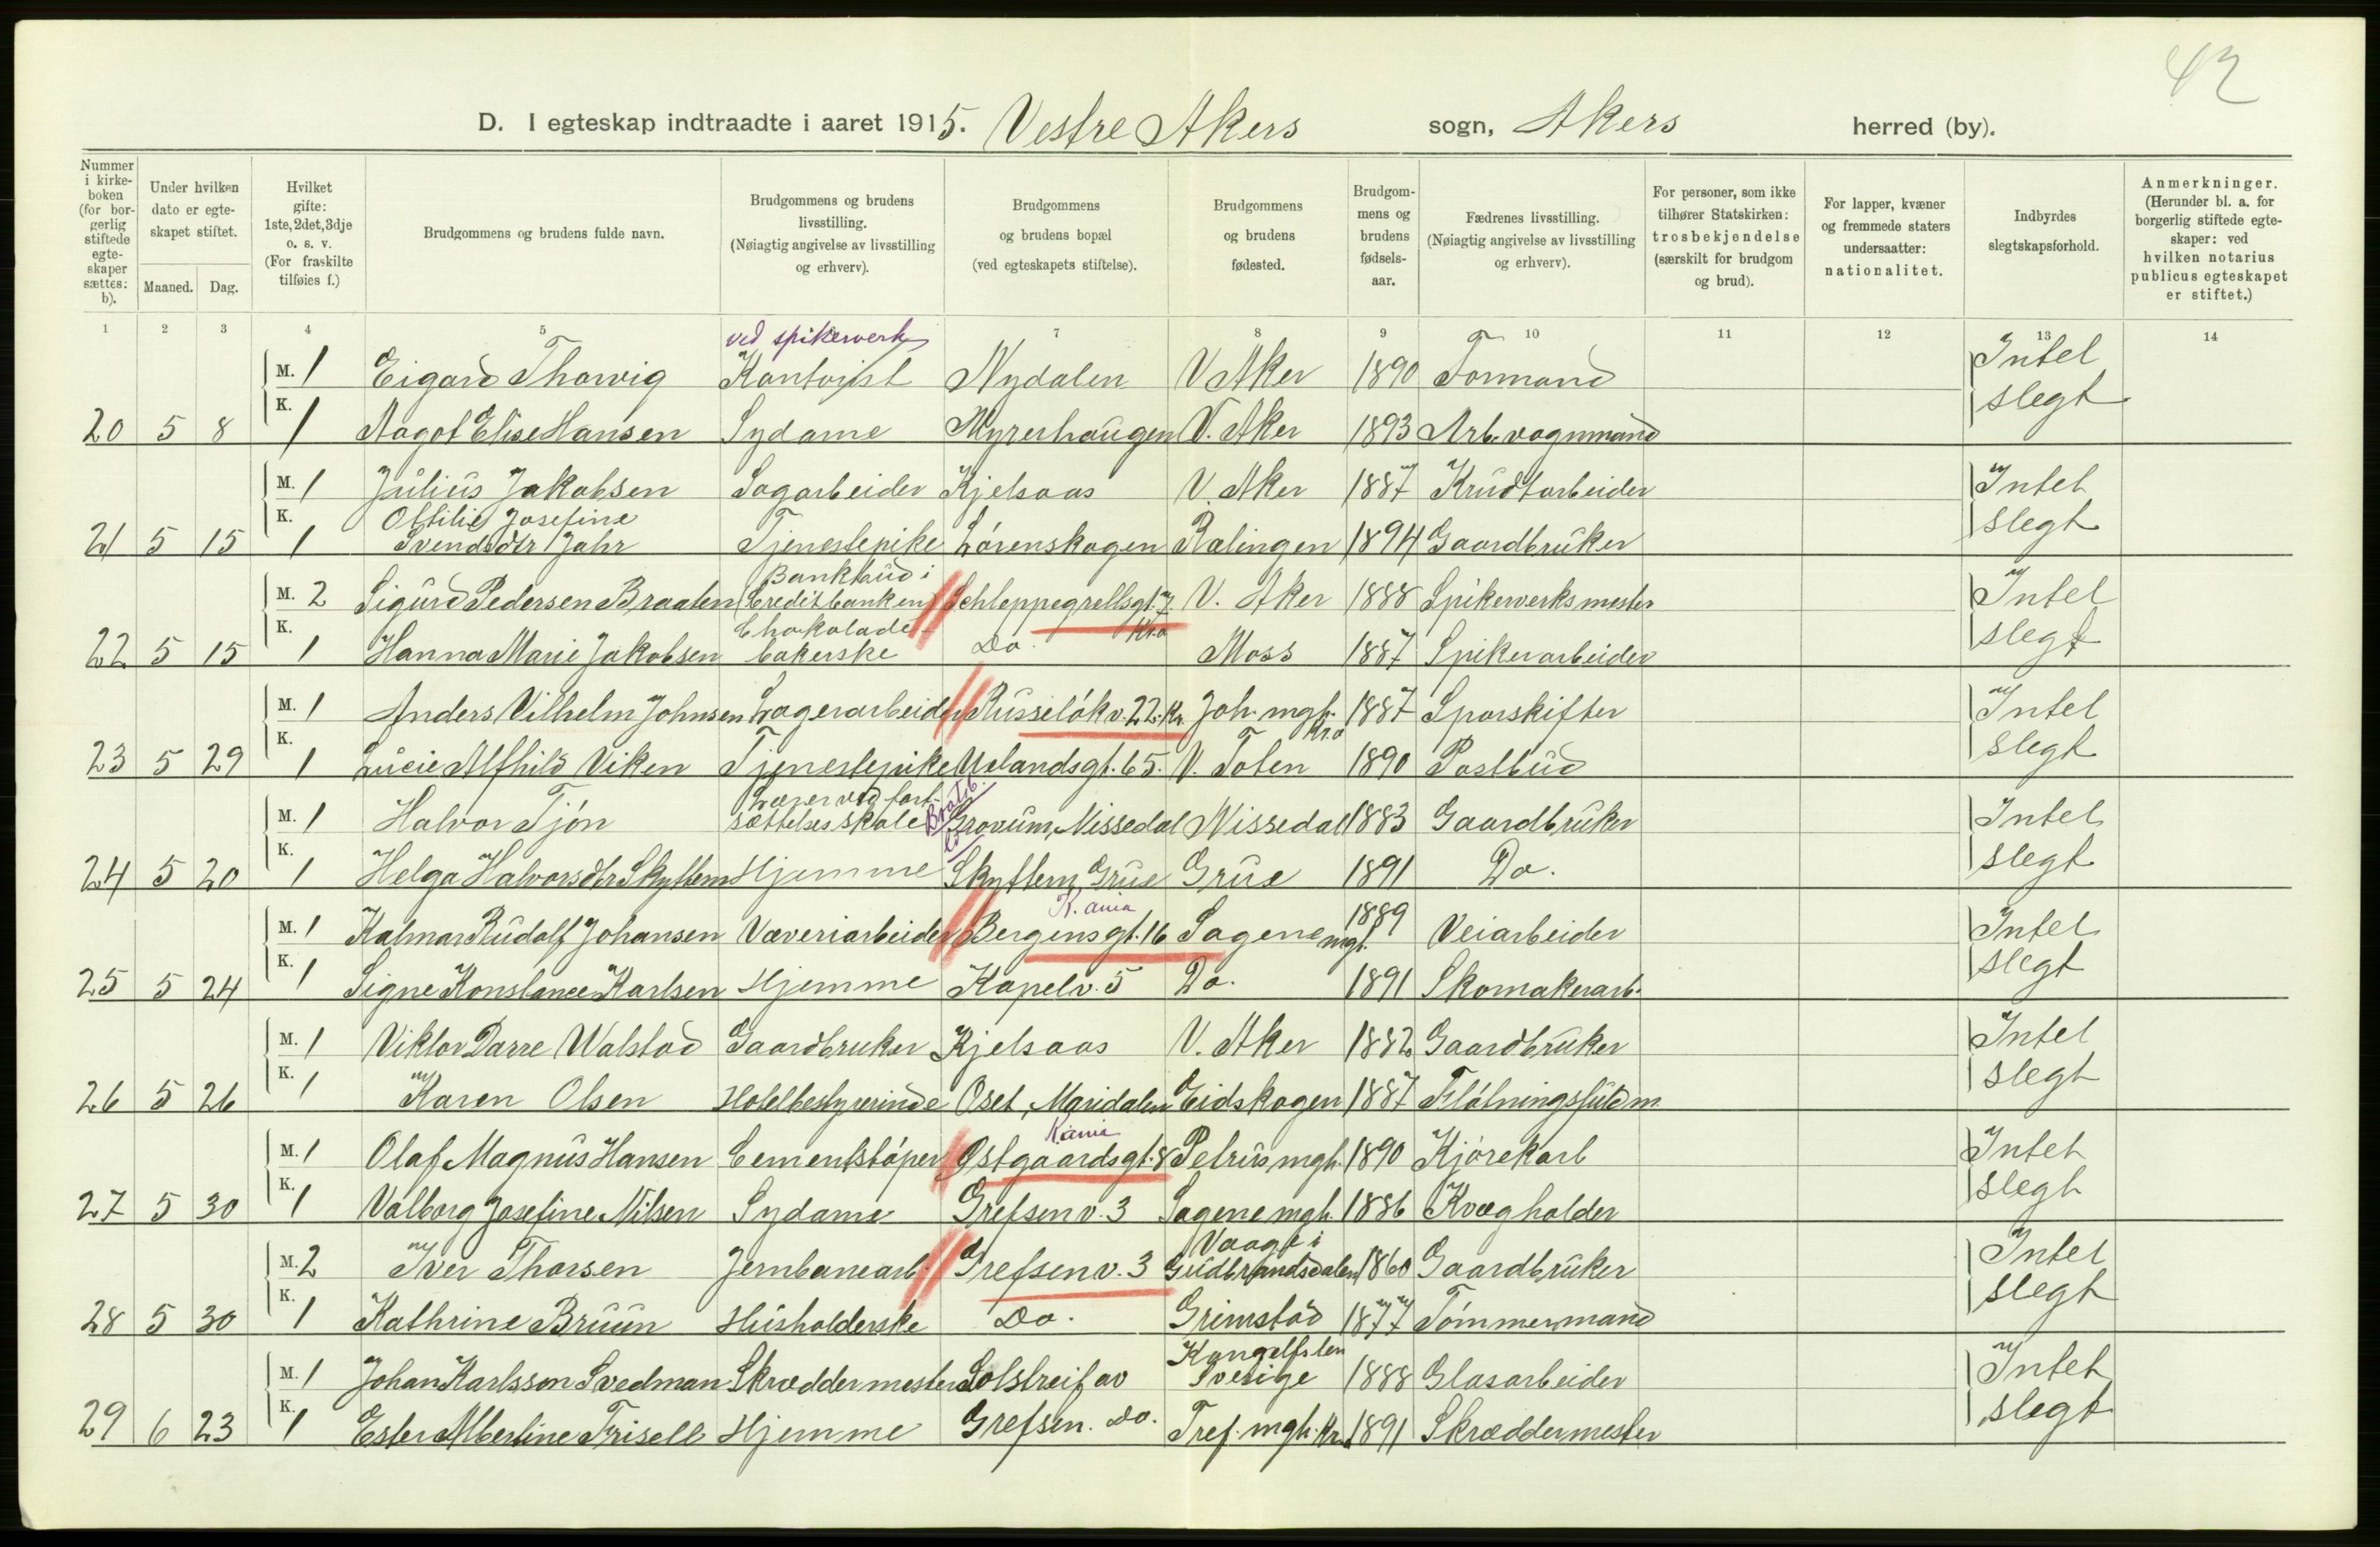 42
D. I egteskap indtraadte i aaret 1915. Vestre Akers sogn, Akers herred (by).
Nummer i kirkeboken (for borgerlig stiftede egteskaper sættes: b).
Under hvilken dato er egteskapet stiftet.
Maaned. Dag.
Hvilket gifte: 1ste, 2det, 3dje o. s. v. (For fraskilte tilføies f.)
Brudgommens og brudens fulde navn.
Brudgommens og brudens livsstilling. (Nøiagtig angivelse av livsstilling og erhverv).
Brudgommens og brudens bopæl (ved egteskapets stiftelse).
Brudgommens og brudens fødested.
Brudgommens og brudens fødselsaar.
Fædrenes livsstilling. (Nøiagtig angivelse av livsstilling og erhverv).
For personer, som ikke tilhører Statskirken: trosbekjendelse (særskilt for brudgom og brud).
For lapper, kvæner og fremmede staters undersaatter: nationalitet.
Indbyrdes slegtskapsforhold.
Anmerkninger. (Herunder bl. a. for borgerlig stiftede egteskaper: ved hvilken notarius publicus egteskapet er stiftet.)
1 2 3 4 5 6 7 8 9 10 11 12 13 14
ved spikerverk
M. 1 Eigard Thorvig Kontorist Nydalen V Aker 1890 Formand Intet
20 5 8 K. 1 Aagot Elise Hansen Sydame Myrerhaugen V. Aker 1893 Arb. vognmand slegt
M. 1 Julius Jakobsen Sagarbeider Kjelsaas V. Aker 1887 Krudtarbeider Intet
Ottilie Josefine
21 5 15 K. 1 Svendsdtr Jahr Tjenestepike Lørenskogen Rælingen 1894 Gaardbruker slegt
Bankbud i
M. 2 Sigurd Pedersen Braaten Creditbanken Schleppegrellsgt. 7 Kr.a V. Aker 1888 Spikerverksmester Intet
Chokolade-
22 5 15 K. 1 Hanna Marie Jakobsen bakerske Do. Moss 1887 Spikerarbeider slegt
M. 1 Anders Vilhelm Johnsen Lagerarbeider Russeløkv. 22. Kr. Joh. mgh. Kr.a 1887 Sporskifter Intet
23 5 29 K. 1 Lucie Alfhild Viken Tjenestepike Uelandsgt. 65. V. Toten 1890 Postbud slegt
Lærer ved fort-
M. 1 Halvor Tjøn sættelsesskole Bratsb. Grovum, Nissedal Nissedal 1883 Gaardbruker Intet
24 5 20 K. 1 Helga Halvorsdtr Skyttern Hjemme Skyttern Grue Grue 1891 Do. slegt
K.ania
M. 1 Kalmar Rudolf Johansen Væveriarbeider Bergensgt. 16 Sagene mgh. 1889 Veiarbeider Intet
25 5 24 K. 1 Signe Konstance Karlsen Hjemme Kapelv. 5 Do. 1891 Skomakerarb. slegt
M. 1 Viktor Darre Walstad Gaardbruker Kjelsaas V. Aker 1882 Gaardbruker Intet
26 5 26 K. 1 Karen Olsen Hotelbestyrerinde Oset, Maridalen Eidskogen 1887 Fløtningsfuldm. slegt
K.ania
M. 1 Olaf Magnus Hansen Cementstøper Østgaardsgt. 8 Petrus mgh. 1890 Kjørekarl Intet
27 5 30 K. 1 Valborg Josefine Nilsen Sydame Grefsenv. 3 Sagene mgh. 1886 Kvægholder slegt
Vaage i
M. 2 Iver Thorsen Jernbanearb. Grefsenv. 3 Gudbrandsdalen 1860 Gaardbruker Intet
28 5 30 K. 1 Kathrine Bruun Husholderske Do. Grimstad 1877 Tømmermand slegt
Kongelfslen
M. 1 Johan Karlsson Svedman Skræddermester Solstreif av Sverige 1888 Glasarbeider Intet
29 6 23 K. 1 Ester Albertine Frisell Hjemme Grefsen. Do. Tref. mgh. Kr. 1891 Skræddermester slegt